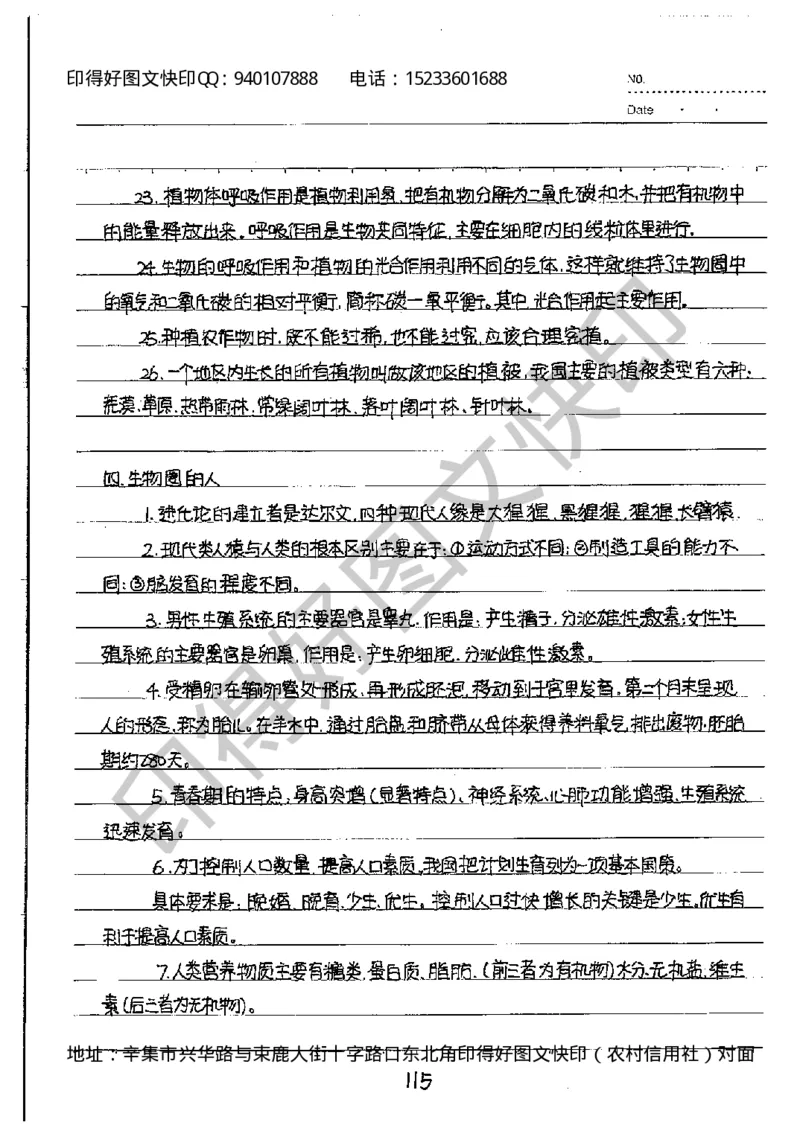 印得好图文快印QQ：940107888 电话：15233601688
NO.
Date
23. 植物体呼吸作用是植物利用氧,把有机物分解为二氧化碳和水,并把有机物中
的能量释放出来。呼吸作用是生物共同特征,主要在细胞内的线粒体里进行.
24. 生物的呼吸作用和植物的光合作用利用不同的气体,这样就维持了生物圈中
的氧气和二氧化碳的相对平衡,简称碳一氧平衡。其中,光合作用起主要作用。
25. 种植农作物时,既不能过稀,也不能过密,应该合理密植。
26. 一个地区内生长的所有植物叫做该地区的植被,我国主要的植被类型有六种:
荒漠.草原.热带雨林.常绿阔叶林.落叶阔叶林、针叶林。
四.生物圈的人
1. 进化论的建立者是达尔文,四种现代人猿是大猩猩、黑猩猩,猩猩,长臂猿.
2. 现代类人猿与人类的根本区别主要在于:①运动方式不同;②制造工具的能力不
同;③脑发育的程度不同。
3. 男性生殖系统的主要器官是睾丸.作用是:产生精子,分泌雄性激素;女性生
殖系统的主要器官是卵巢,作用是:产生卵细胞.分泌雌性激素。
4. 受精卵在输卵管处形成,再形成胚泡,移动到子宫里发育,第二个月末呈现
人的形态,称为胎儿。在羊水中,通过胎盘和脐带从母体获得养料氧气,排出废物.胚胎
期约280天。
5. 青春期的特点:身高突增(显著特点)、神经系统、心肺功能增强、生殖系统
迅速发育。
6. 为了控制人口数量,提高人口素质,我国把计划生育列为一项基本国策。
具体要求是:晚婚、晚育、少生、优生。控制人口过快增长的关键是少生,优生有
利于提高人口素质。
7. 人类营养物质主要有糖类,蛋白质、脂肪.(前三者为有机物)水分.无机盐,维生
素(后三者为无机物)。
地址：辛集市兴华路与束鹿大街十字路口东北角印得好图文快印（农村信用社）对面
115
印得好图文快印